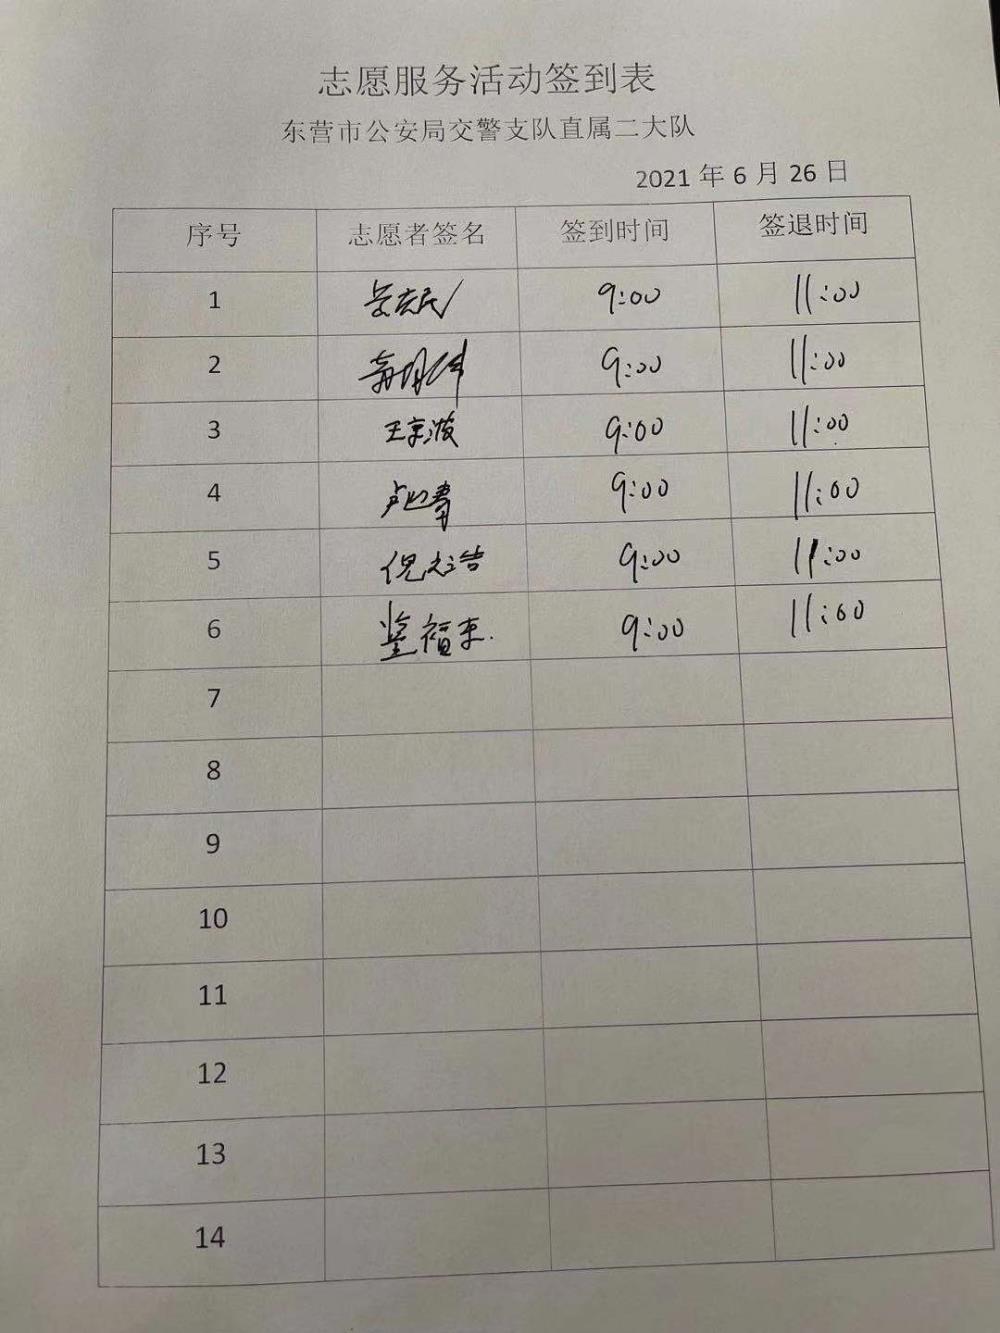 志愿服务活动签到表
东营市公安局交警支队直属二大队
2021 年 6 月 26 日
序号 志愿者签名 签到时间 签退时间
1 9:00 11:00
2 9:00 11:00
3 王京波 9:00 11:00
4 9:00 11:00
5 倪志浩 9:00 11:00
6 福来. 9:00 11:00
7
8
9
10
11
12
13
14